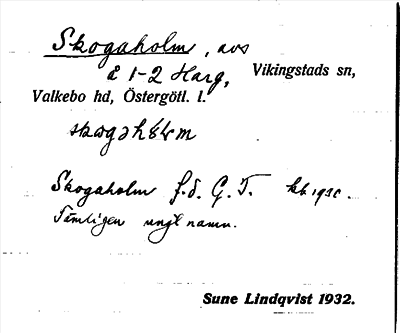 Skogaholm, avs
å 1-2 Harg, Vikingstads sn,
Valkebo hd, Östergötl. l.
Skogaholm f.d. G. T. kb 1910.
Tämligen ungt namn.
Sune Lindqvist 1932.